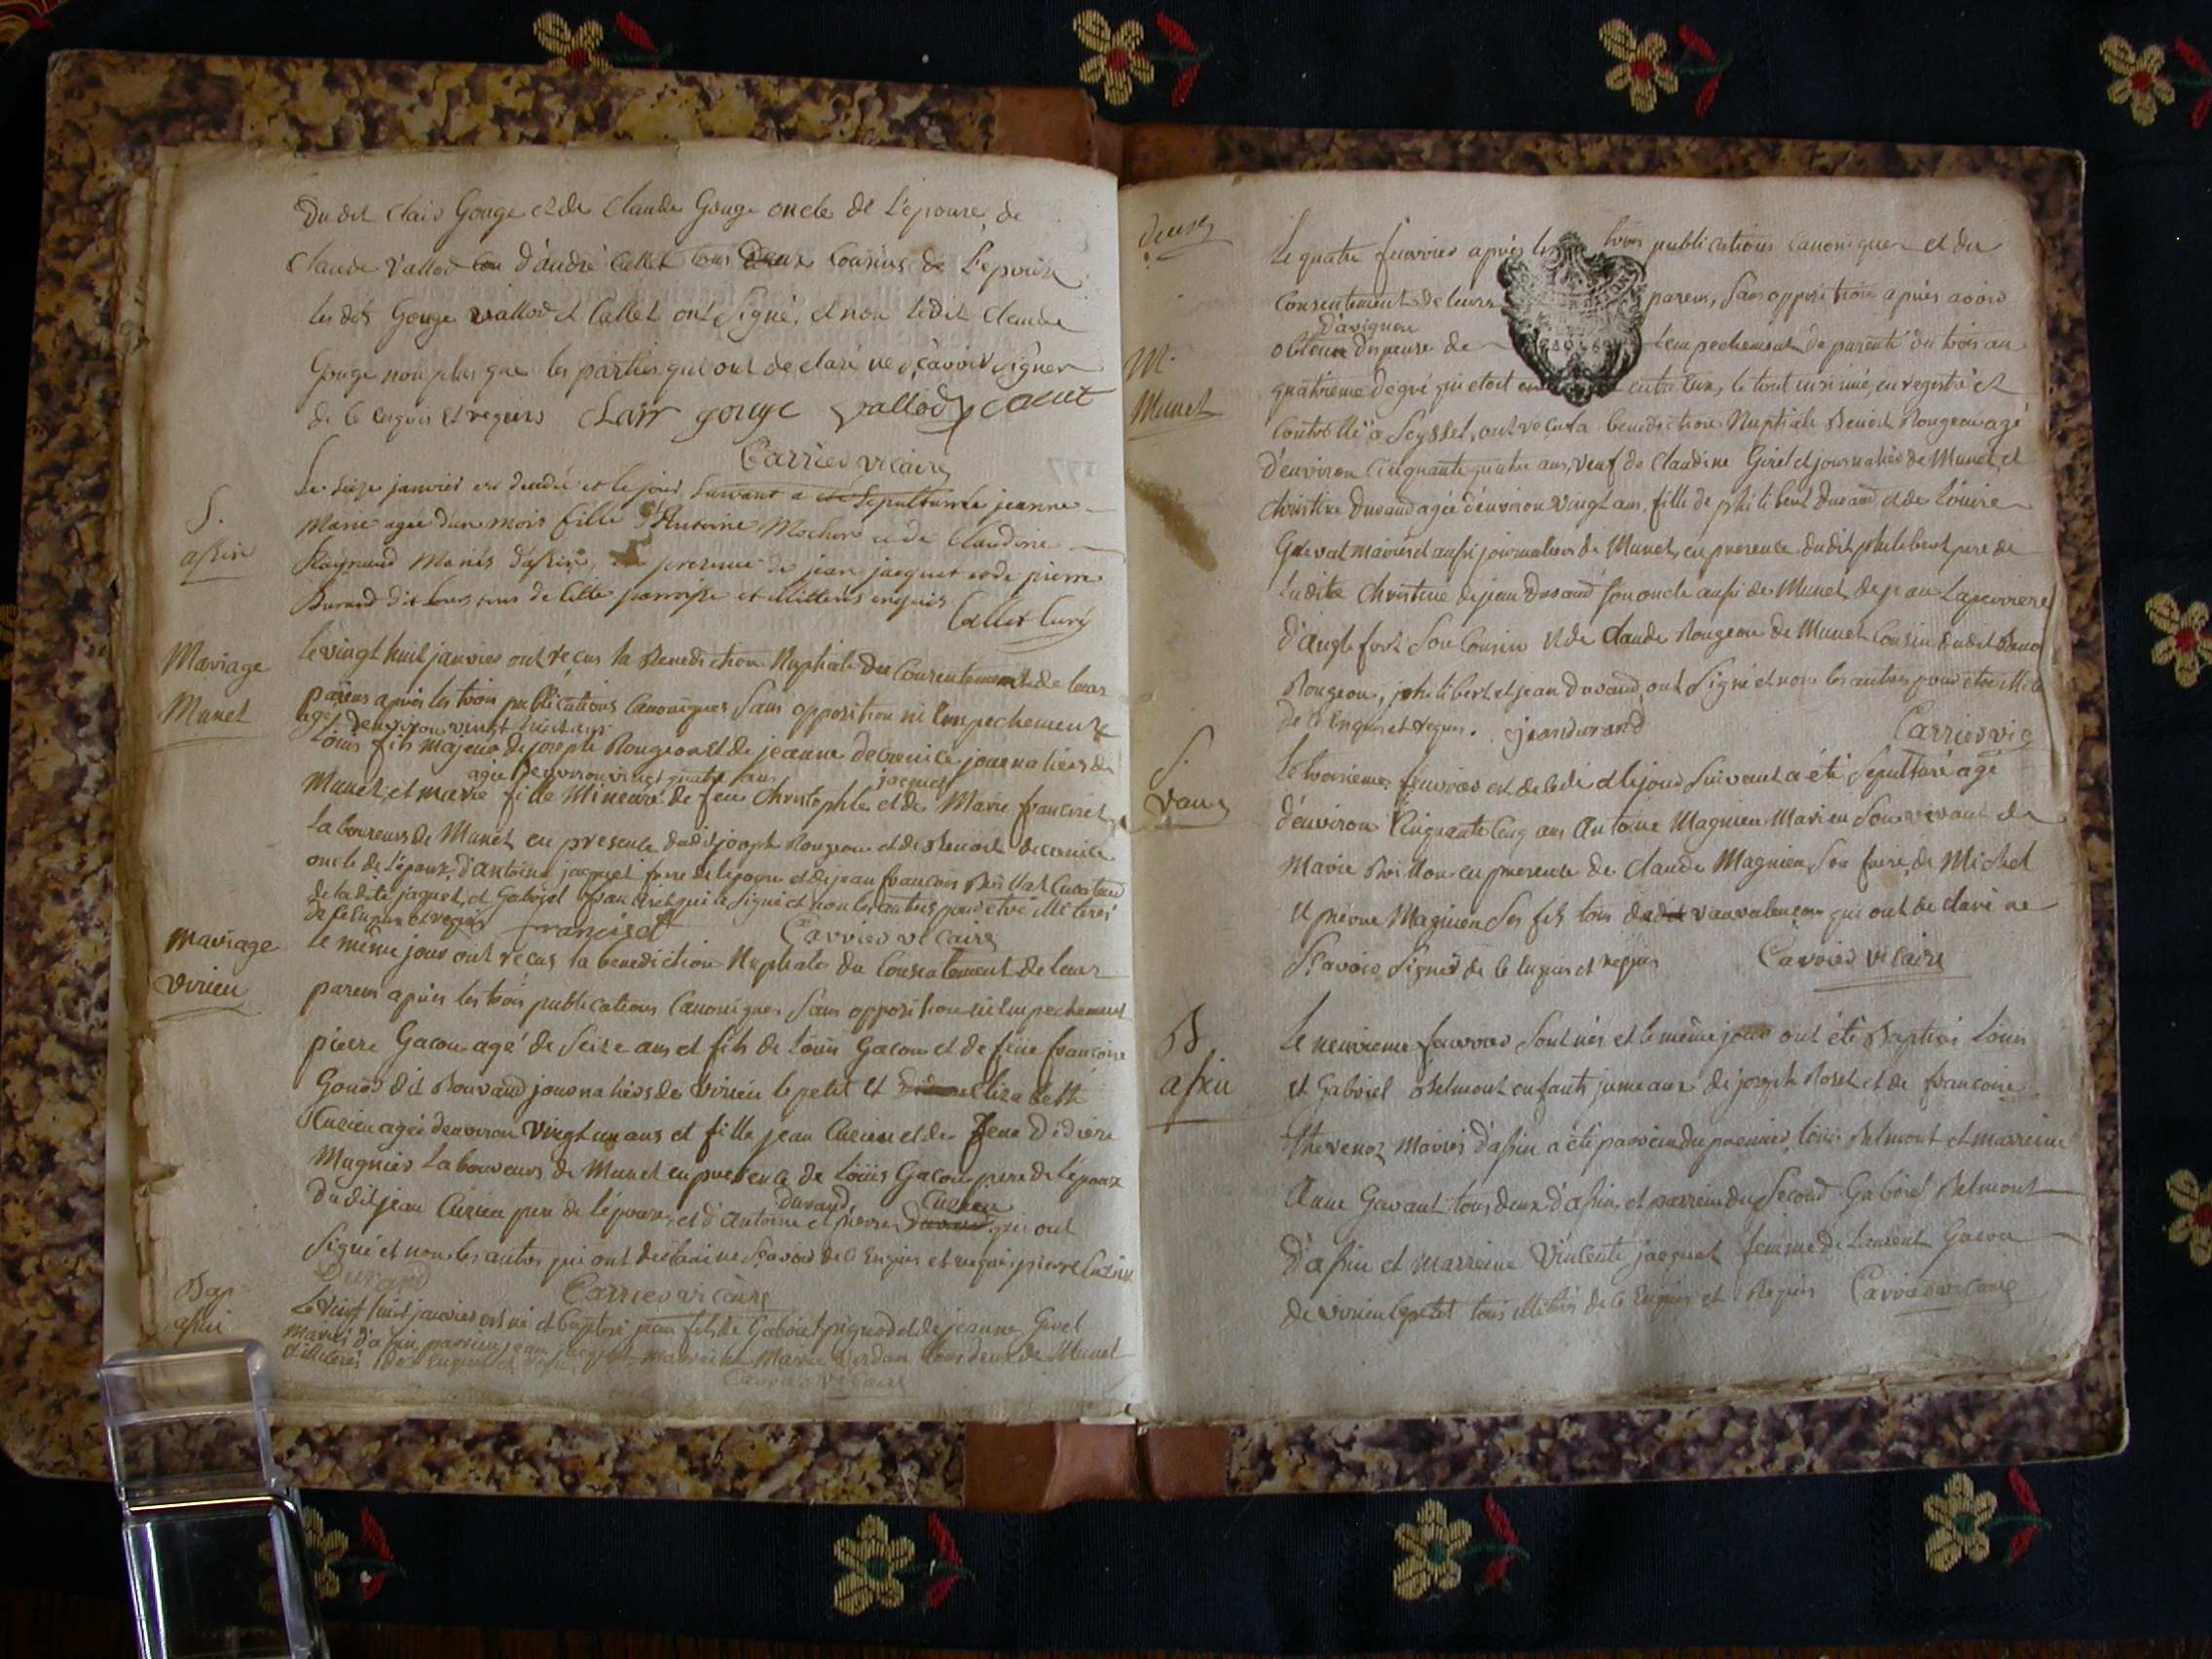 Dudit Clair Gouge et de Claude Gouge oncle de L'epouse, de
Claude Vallod d'andré Callet tous Deux Cousins de L'epouse
les dits Gouge Vallod et Callet ont Signé, et non ledit Claude
Gouge non plus que les parties qui ont declaré ne sçavoir signer
de ce enquis et requis Clair gouge vallod callet
Carrier vicaire
S.
assin
Le seize janvier est decedée et le jour suivant a eté sepulturée jeanne
Marie agée d'un mois fille d'Antoine Mochon et de Claudine
Raynaud Mariés d'assin, en presence de jean jacquet et de pierre
Burand dit tous de cette parroisse et illiterés enquis
Callet Curé
Mariage
Munet
le vingt huit janvier ont reçus la Benediction Nuptiale du Consentement de leurs
parens après les trois publications Canoniques Sans opposition ni Empechement
agé d'environ vingt huit ans
Loüis fils majeur de joseph Rougeon et de jeanne decrenice journaliers de
agée d'environ vingt quatre ans jacquet
Munet, et marie fille Mineure de feu Christophle et de Marie franciret
Laboureurs de Munet en presence dudit joseph Rougeon et de Benoit decrenice
oncle de L'epoux, d'Antoine jacquet frere de lepouse et de jean francois Brillat
de ladite jacquet, et Gabriel franciret qui a Signé et non les autres pour etre illiterés
de ce enquis et requis franciret Carrier vicaire
mariage
virieu
le même jour ont reçus la benediction Nuptiale du Consentement de leurs
parens après les trois publications Canoniques Sans opposition ni Empechement
pierre Gacon agé de Seize ans et fils de Loüis Gacon et de feüe francoise
Gonod dit Bouvand journaliers de virieu le petit et Elizabeth
Curieu agée d'environ vingt un ans et fille jean Curieu et de feue Didiere
Magnier Laboureurs de Munet en presence de Loüis Gacon pere de L'epoux
Durand Curieu
Dudit jean Curieu pere de l'epouse, et d'Antoine et pierre qui ont
Signé et non les autres qui ont declaré ne sçavoir de ce Enquis et requis pierre Curieu
Durand Carrier vicaire
Bap
assin
Le vingt huit janvier est né et baptisé jean fils de Gabriel pignod et de jeanne Givel
Mariés d'assin, parrein jean jacquet marreine Marie Verdan tous deux de Munet
illiterés de ce enquis et requis
Carrier vicaire
deuse
M.
Munet
Le quatre fevrier après les trois publications Canoniques et du
Consentement de leurs parens, Sans opposition après avoir
d'avignon
obtenu dispense de l'empechement de parenté du trois au
quatrieme dégré qui etoit entre Eux, le tout insinué, enregistré et
Controllé a Seyssel, ont reçus la benediction Nuptiale Benoit Rougeon agé
d'environ Cinquante quatre ans, veuf de Claudine Girel et journalier de Munet, et
Christine Durand agée d'environ vingt ans, fille de philibert Durand et de Loüise
Gravat mariés et aussi journaliers de Munet, en presence dudit philibert pere de
Ladite Christine de jean Durand son oncle aussi de Munet, de jean Laperriere
d'anglefort Son Cousin et de Claude Rougeon de Munet Cousin dudit Benoit
Rougeon, philibert et jean durand ont Signé et non les autres pour etre illite
de ce Enquis et requis. jean durand Carrier vic
S.
Vaux
Le troisieme fevrier est decedé et le jour Suivant a été Sepulturé agé
d'environ Cinquante Cinq ans Antoine Magnien Mari en Son vivant de
Marie Boillon en presence de Claude Magnien Son frere, de Michel
et pierre Magnien Ses fils tous dudit vauvalençon qui ont declaré ne
Sçavoir Signer de ce Enquis et requis Carrier vicaire
B
assin
Le neuvieme fevrier Sont nés et le même jour ont été Baptisés Loüis
et Gabriel Belmont enfants jumeaux de joseph Roset et de francoise
thevenoz Mariés d'assin a été parrein du premier Loüis Belmont et marreine
Anne Gavant tous deux d'assin, et parrein du Second Gabriel Belmont
D'assin et Marreine Vincente jacquet femme de Laurent Gacon
de virieu lepetit tous illiterés de ce Enquis et Requis Carrier vicaire